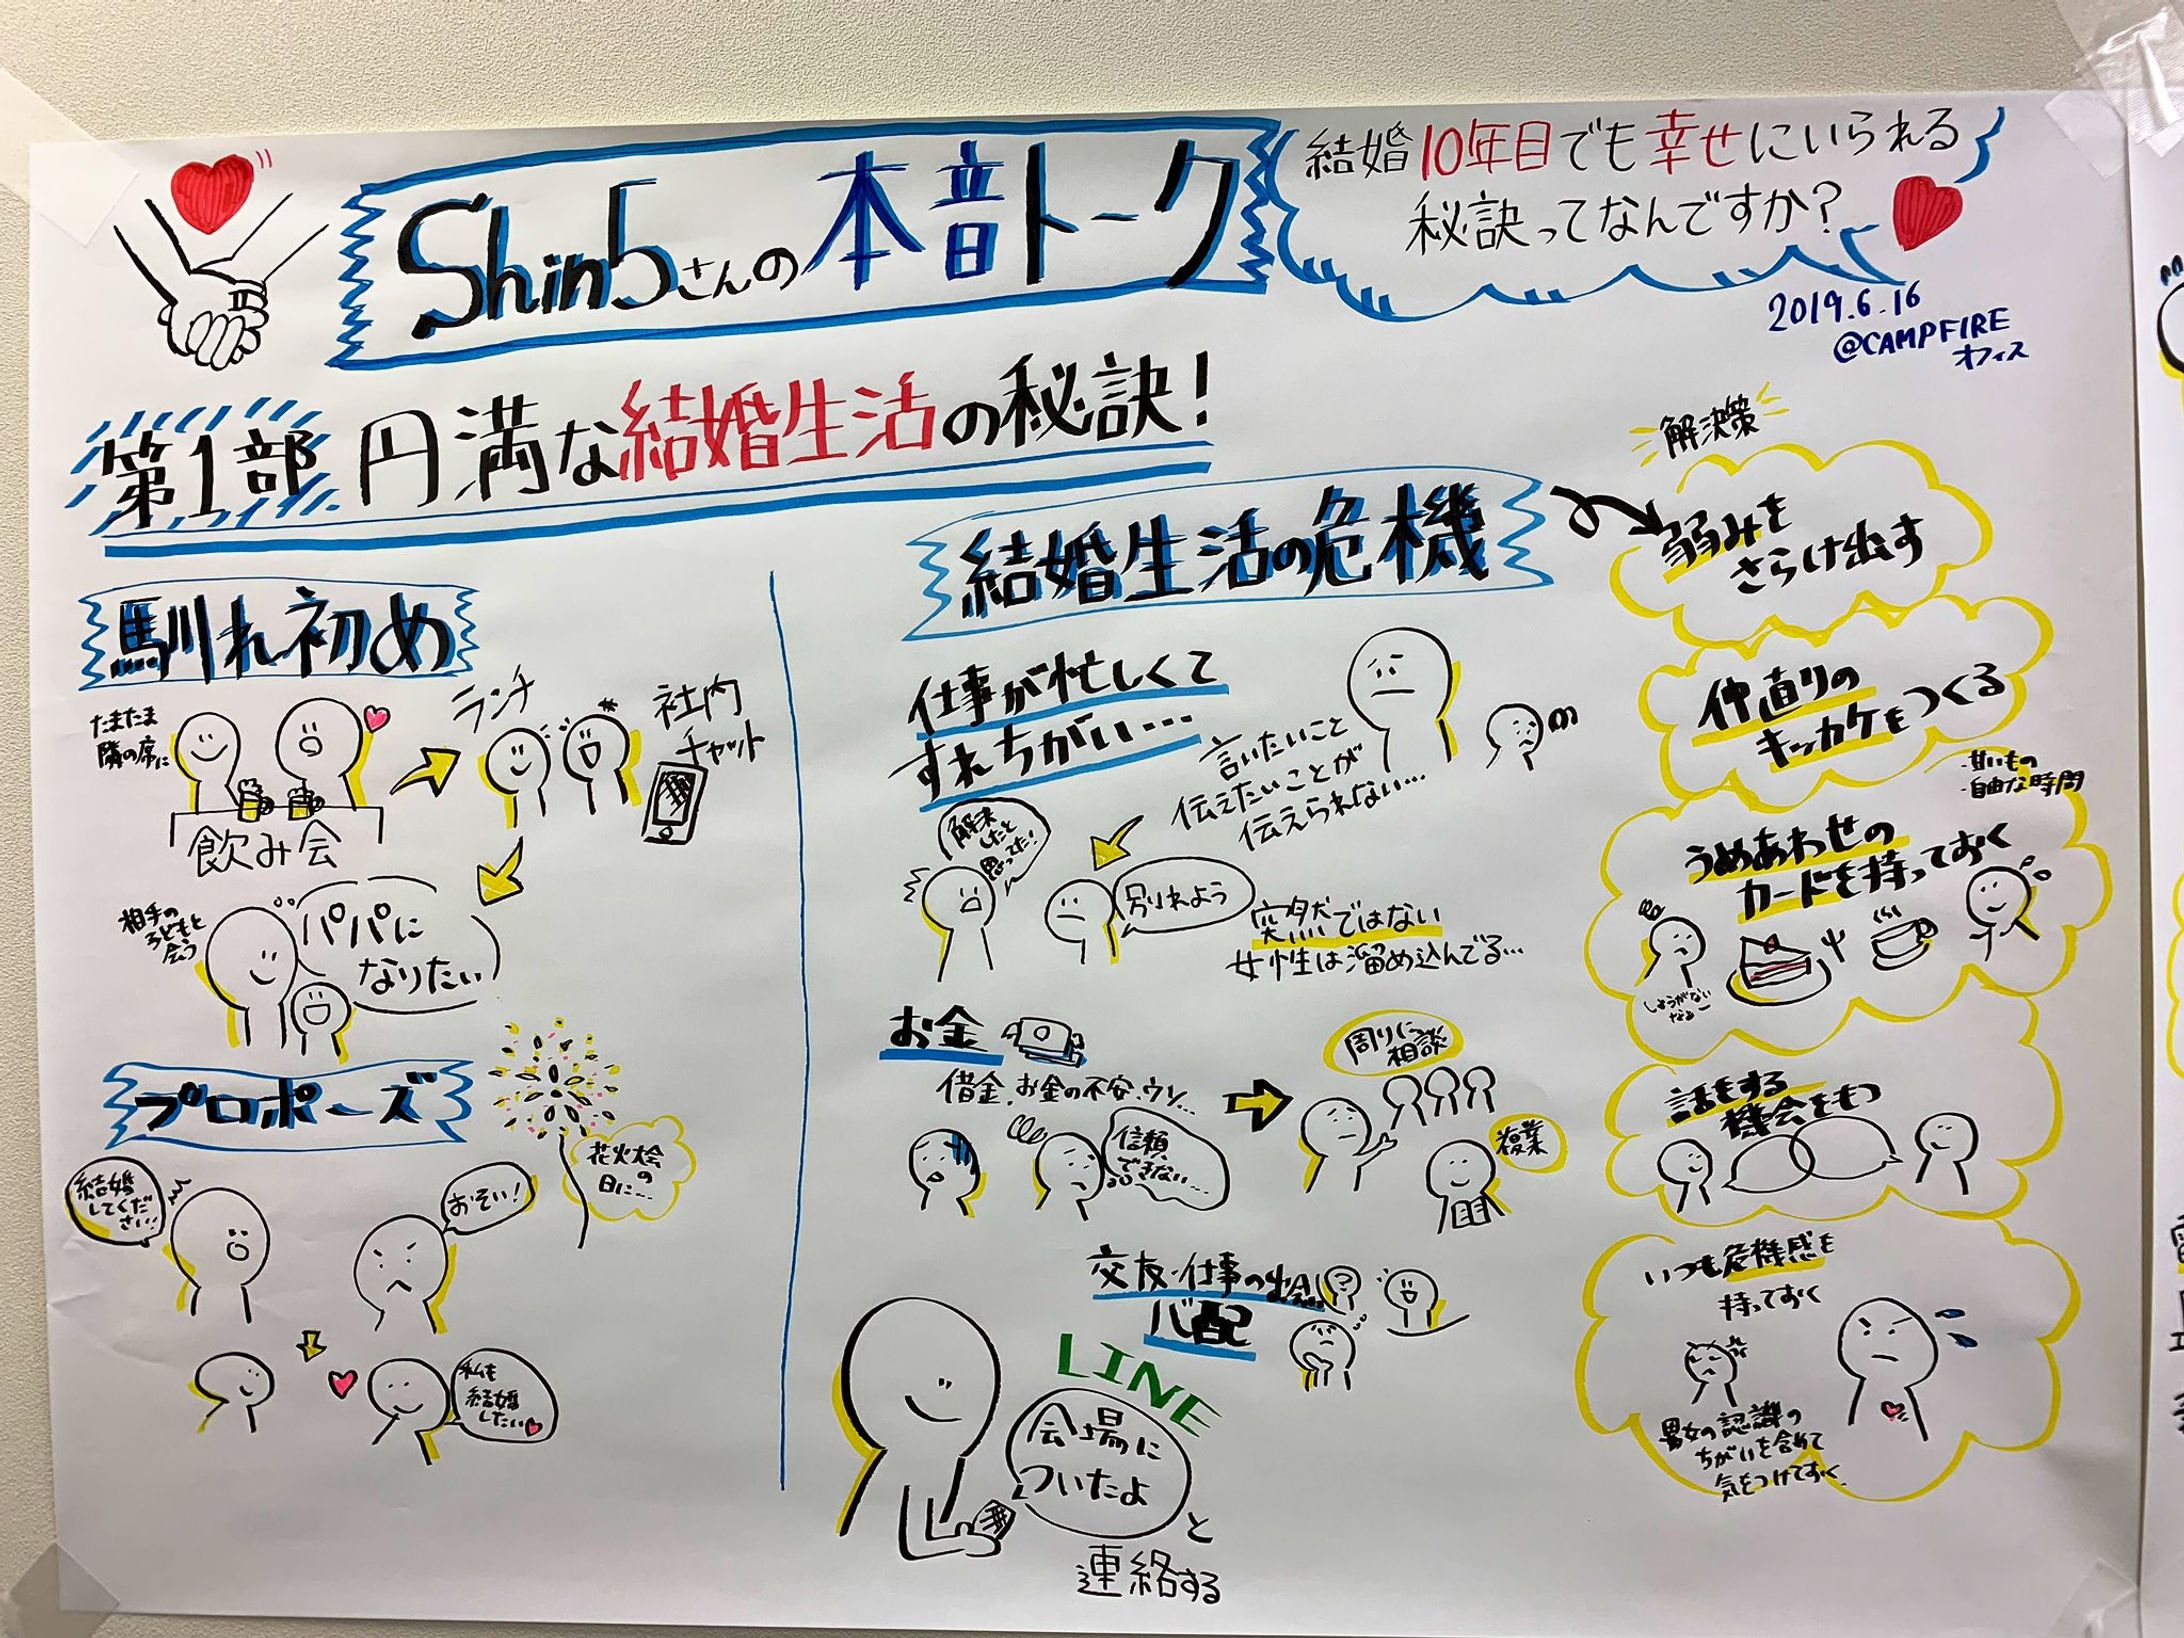 Shin5さんの本音トーク
結婚10年目でも幸せにいられる
秘訣ってなんですか?
2019.6.16
@CAMPFIRE
オフィス
第1部 円満な結婚生活の秘訣!
馴れ初め
たまたま
隣の席に
飲み会
ランチ
社内
チャット
相手の
子どもと
会う
パパに
なりたい
プロポーズ
花火大会
の
日に…
結婚
してくだ
さい!!
おそい!
私も
結婚
したい
結婚生活の危機
仕事が忙しくて
すれちがい…
言いたいこと
伝えたいことが
伝えられない…
解決
したと
思ってた!
別れよう
突然ではない
女性は溜め込んでる…
お金
借金、お金の不安、ウソ…
信頼
できない…
周りに
相談
複業
交友・仕事の出会い
心配
?
LINE
会場に
ついたよ
と
連絡する
解決策
弱みを
さらけ出す
仲直りの
キッカケをつくる
・甘いもの
・自由な時間
うめあわせの
カードを持っておく
しょうがない
なぁー
話をする
機会をもつ
いつも危機感を
持っておく
男女の認識の
ちがいを含めて
気をつけておく